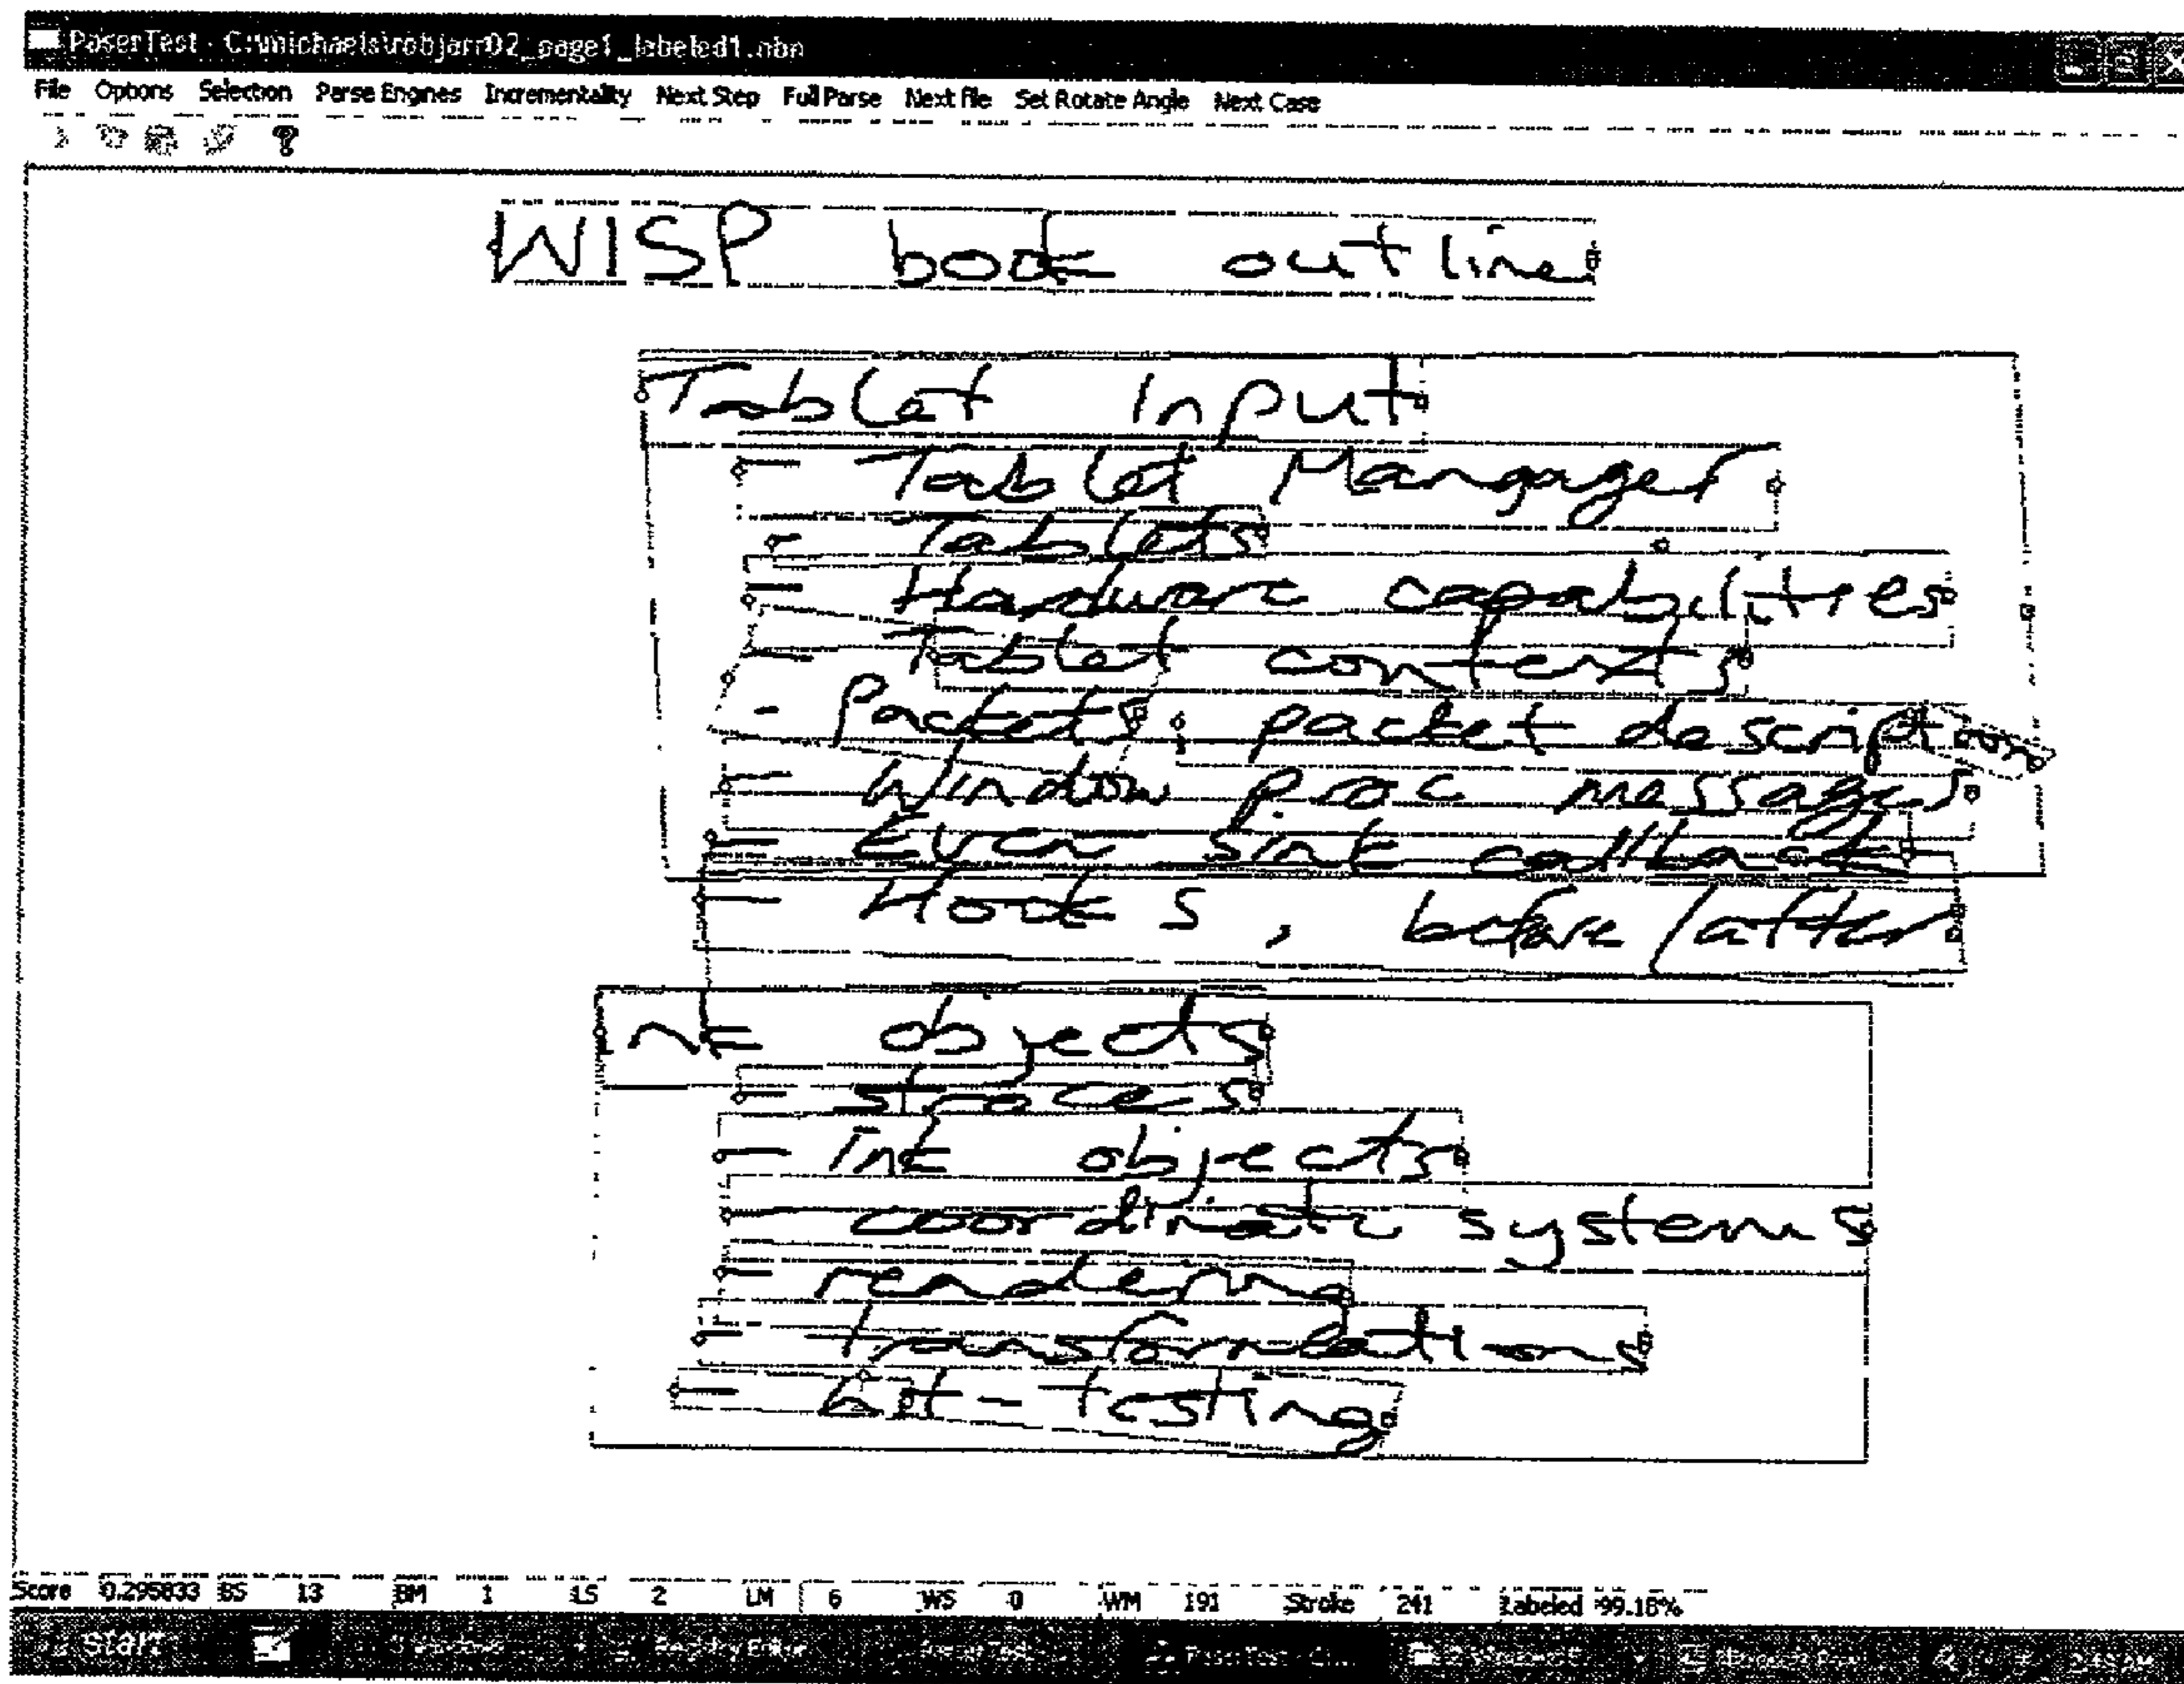 PaserTest - C:\michaels\robjarr02_page1_labeled1.nbn
File Options Selection Parse Engines Incrementality Next Step Full Parse Next file Set Rotate Angle Next Case
WISP book outline
Tablet Input
- Tablet Mangager
- Tablets
- Hardware capabilities
- Tablet contexts
- Packets, packet description
- Window proc messages
- Even sink callback
- Hooks, before/after
Ink objects
- strokes
- Ink objects
- coordinate systems
- rendering
- transformations
- hit-testing
Score 0.295833 BS 13 BM 1 LS 2 LM 6 WS 0 WM 191 Stroke 241 Labeled 99.18%
start